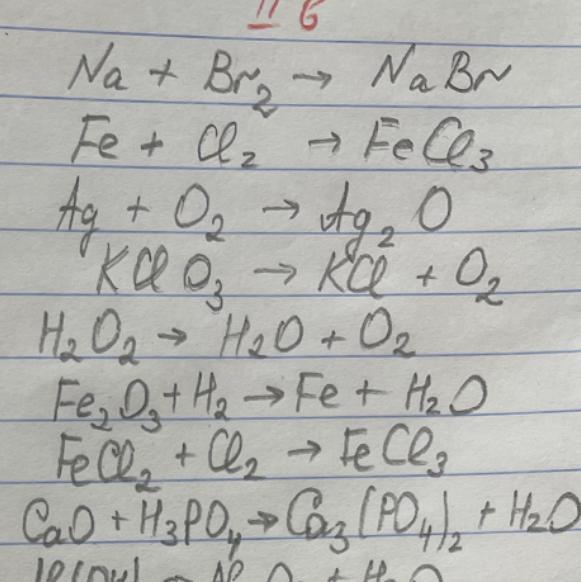 II 6
Na + Br₂ → NaBr
Fe + Cl₂ → FeCl₃
Ag + O₂ → Ag₂O
KClO₃ → KCl + O₂
H₂O₂ → H₂O + O₂
Fe₂O₃ + H₂ → Fe + H₂O
FeCl₂ + Cl₂ → FeCl₃
CaO + H₃PO₄ → Ca₃(PO₄)₂ + H₂O